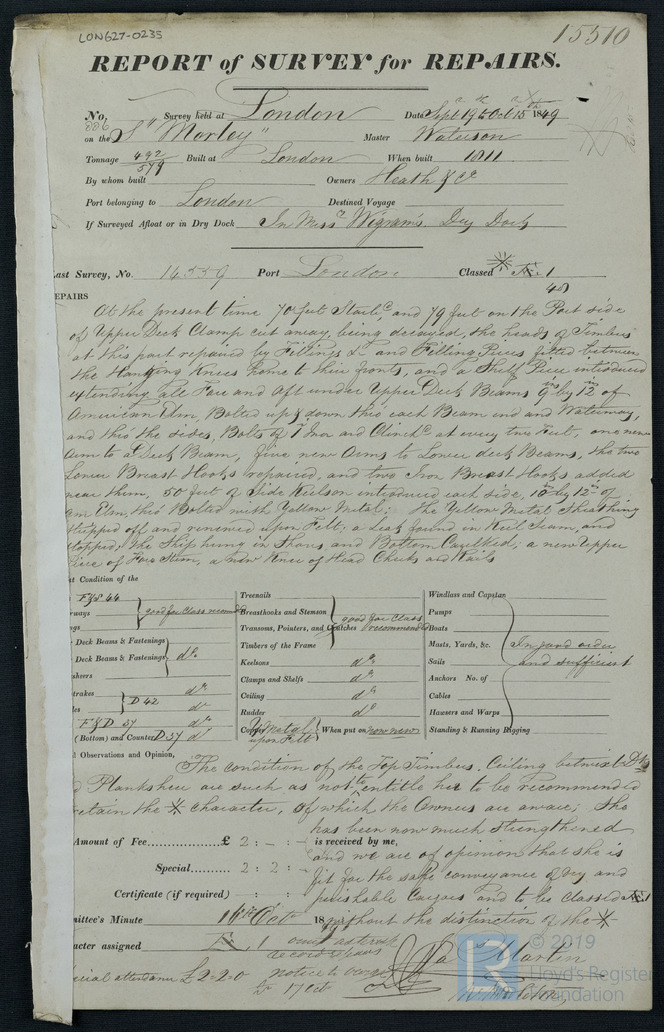 LON627-0235
15510
REPORT of SURVEY for REPAIRS.
No, 886 Survey held at London Date Sept 19th to Oct 15th 1849
on the Sp "Morley" Master Waterson
Tonnage 492/579 Built at London When built 1811
By whom built Owners Heath & Co
Port belonging to London Destined Voyage
If Surveyed Afloat or in Dry Dock In Messrs Wigram's Dry Dock
ast Survey, No. 14559 Port London Classed Æ 1
48
EPAIRS
At the present time 70 feet Starbd and 79 feet on the Port side
of Upper Deck Clamp cut away, being decayed, the heads of Timbers
at this part repaired by Fillings &c and Filling Pieces fitted between
the Hanging Knees home to their fronts, and a Shelf Piece introduced
extending all Fore and Aft under Upper Deck Beams 9ins by 12ins of
American Elm, Bolted up & down thro' each Beam end and Waterway,
and thro' the sides, Bolts of 1 Iron and Clinchd at every two Feet, one new
Arm to Deck Beam, five new Arms to Lower deck Beams, the two
Lower Breast Hooks repaired, and two Iron Breast Hooks added
near them, 50 feet of Side Keelson introduced each side, 10 by 12ins of
Am Elm, thro' Bolted with Yellow Metal; the Yellow Metal Sheathing
stripped off and renewed upon Felt; a Leak found in Keel Seam, and
stopped, the Ship hung in Shores and Bottom Caulked; a new upper
piece of Fore Stem, a new Knee of Head Cheeks and Rails
t Condition of the
F & S 44
rways
ngs
good for Class recommd
Deck Beams & Fastenings
Deck Beams & Fastenings do
sheers
trakes do
es D 42 do
F & D 37 do
(Bottom) and Counter D 37 do
Treenails
Breasthooks and Stemson
Transoms, Pointers, and Crutches
good for Class recommended
Timbers of the Frame
Keelsons do
Clamps and Shelfs do
Ceiling do
Rudder do
Copper Y Metal upon Felt When put on now new
Windlass and Capstan
Pumps
Boats
Masts, Yards, &c.
Sails
In good order and sufficient
Anchors No. of
Cables
Hawsers and Warps
Standing & Running Rigging
l Observations and Opinion,
The condition of the Top Timbers, Ceiling betwixt Dks
Planksheer are such as not to entitle her to be recommended
retain the character, of which the Owners are aware; She
has been now much strengthened
Amount of Fee £ 2 : - : - is received by me,
and we are of opinion that she is
Special 2 : 2 : -
fit for the safe conveyance of dry and
Certificate (if required) - : - :
perishable Cargoes and to be classed Æ 1
mittee's Minute 16th Oct 1849
without the distinction of the
acter assigned Æ 1 omit asterisk
record repairs
ecial attendance £2-2-0 notice to owners
17 Oct
Jas Martin
© 2019
Lloyd's Register
Foundation